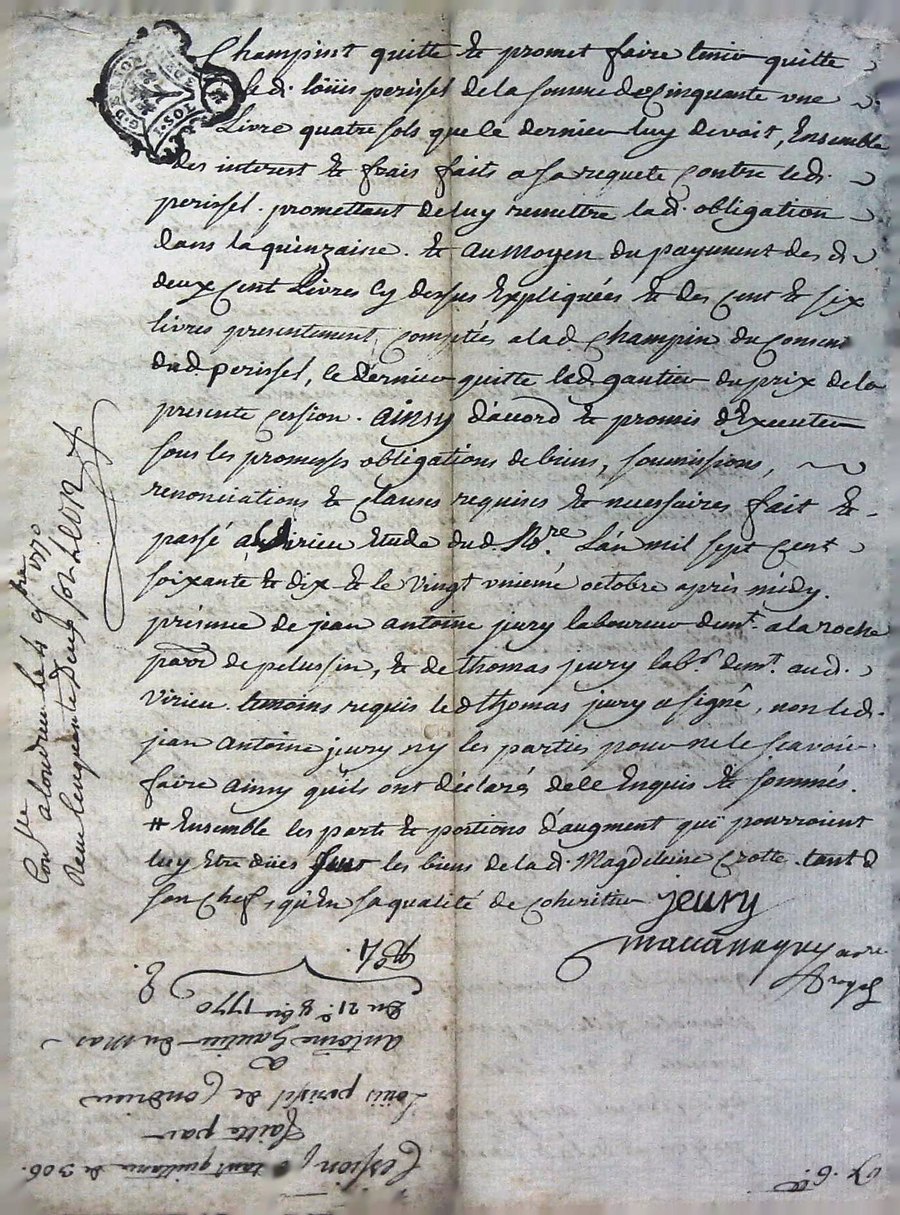 Champint quitte & promet faire tenir quitte
led. loüis perissel de la somme de cinquante une
Livre quatre sols que le dernier luy devoit, Ensemble
des interest & frais faits a sa requete Contre led.
perissel. promettant de luy remettre lad. obligation
dans la quinzaine. & au moyen du payement des d.
deux Cent Livres Cy dessus Expliquées & des Cent & six
livres presentement comptés a lad Champin du Consent
dud perissel, le dernier quitte led. gautier du prix de la
presente Cession. ainsy d'accord & promis d'Executer
sous les promesses obligations de biens, soumissions,
renonciations & Clauses requises & necessaires fait &
passé a Virieu Etude dud. No.re L'an mil sept Cent
soixante & dix & le vingt unieme octobre après midy.
présence de jean antoine jury laboureur demt. a la roche
parr de pelussin, & de thomas jury labr. demt. aud.
Virieu. temoins requis led thomas jury a signé, non led.
jean antoine jury ny les parties pour ne le scavoir
faire ainsy qu'ils ont déclarés de ce Enquis & sommés.
# Ensemble les parts & portions d'augment qui pourroient
luy Etre dües sur les biens de lad. Magdeleine Crotte. tant d
son Chef, qu'En sa qualité de Coheritier jeury
no.re
Royal
Con.lle a Condrieu le 4 9bre 1770
Recu Cinquante Deux sols
Cession & tant quittance de 306.
faitte par
Loüis perissel de Condrieu
a
antoine Gautier du Mas
Du 21e. 8bre 1770
G. DE LYON
1. SOL